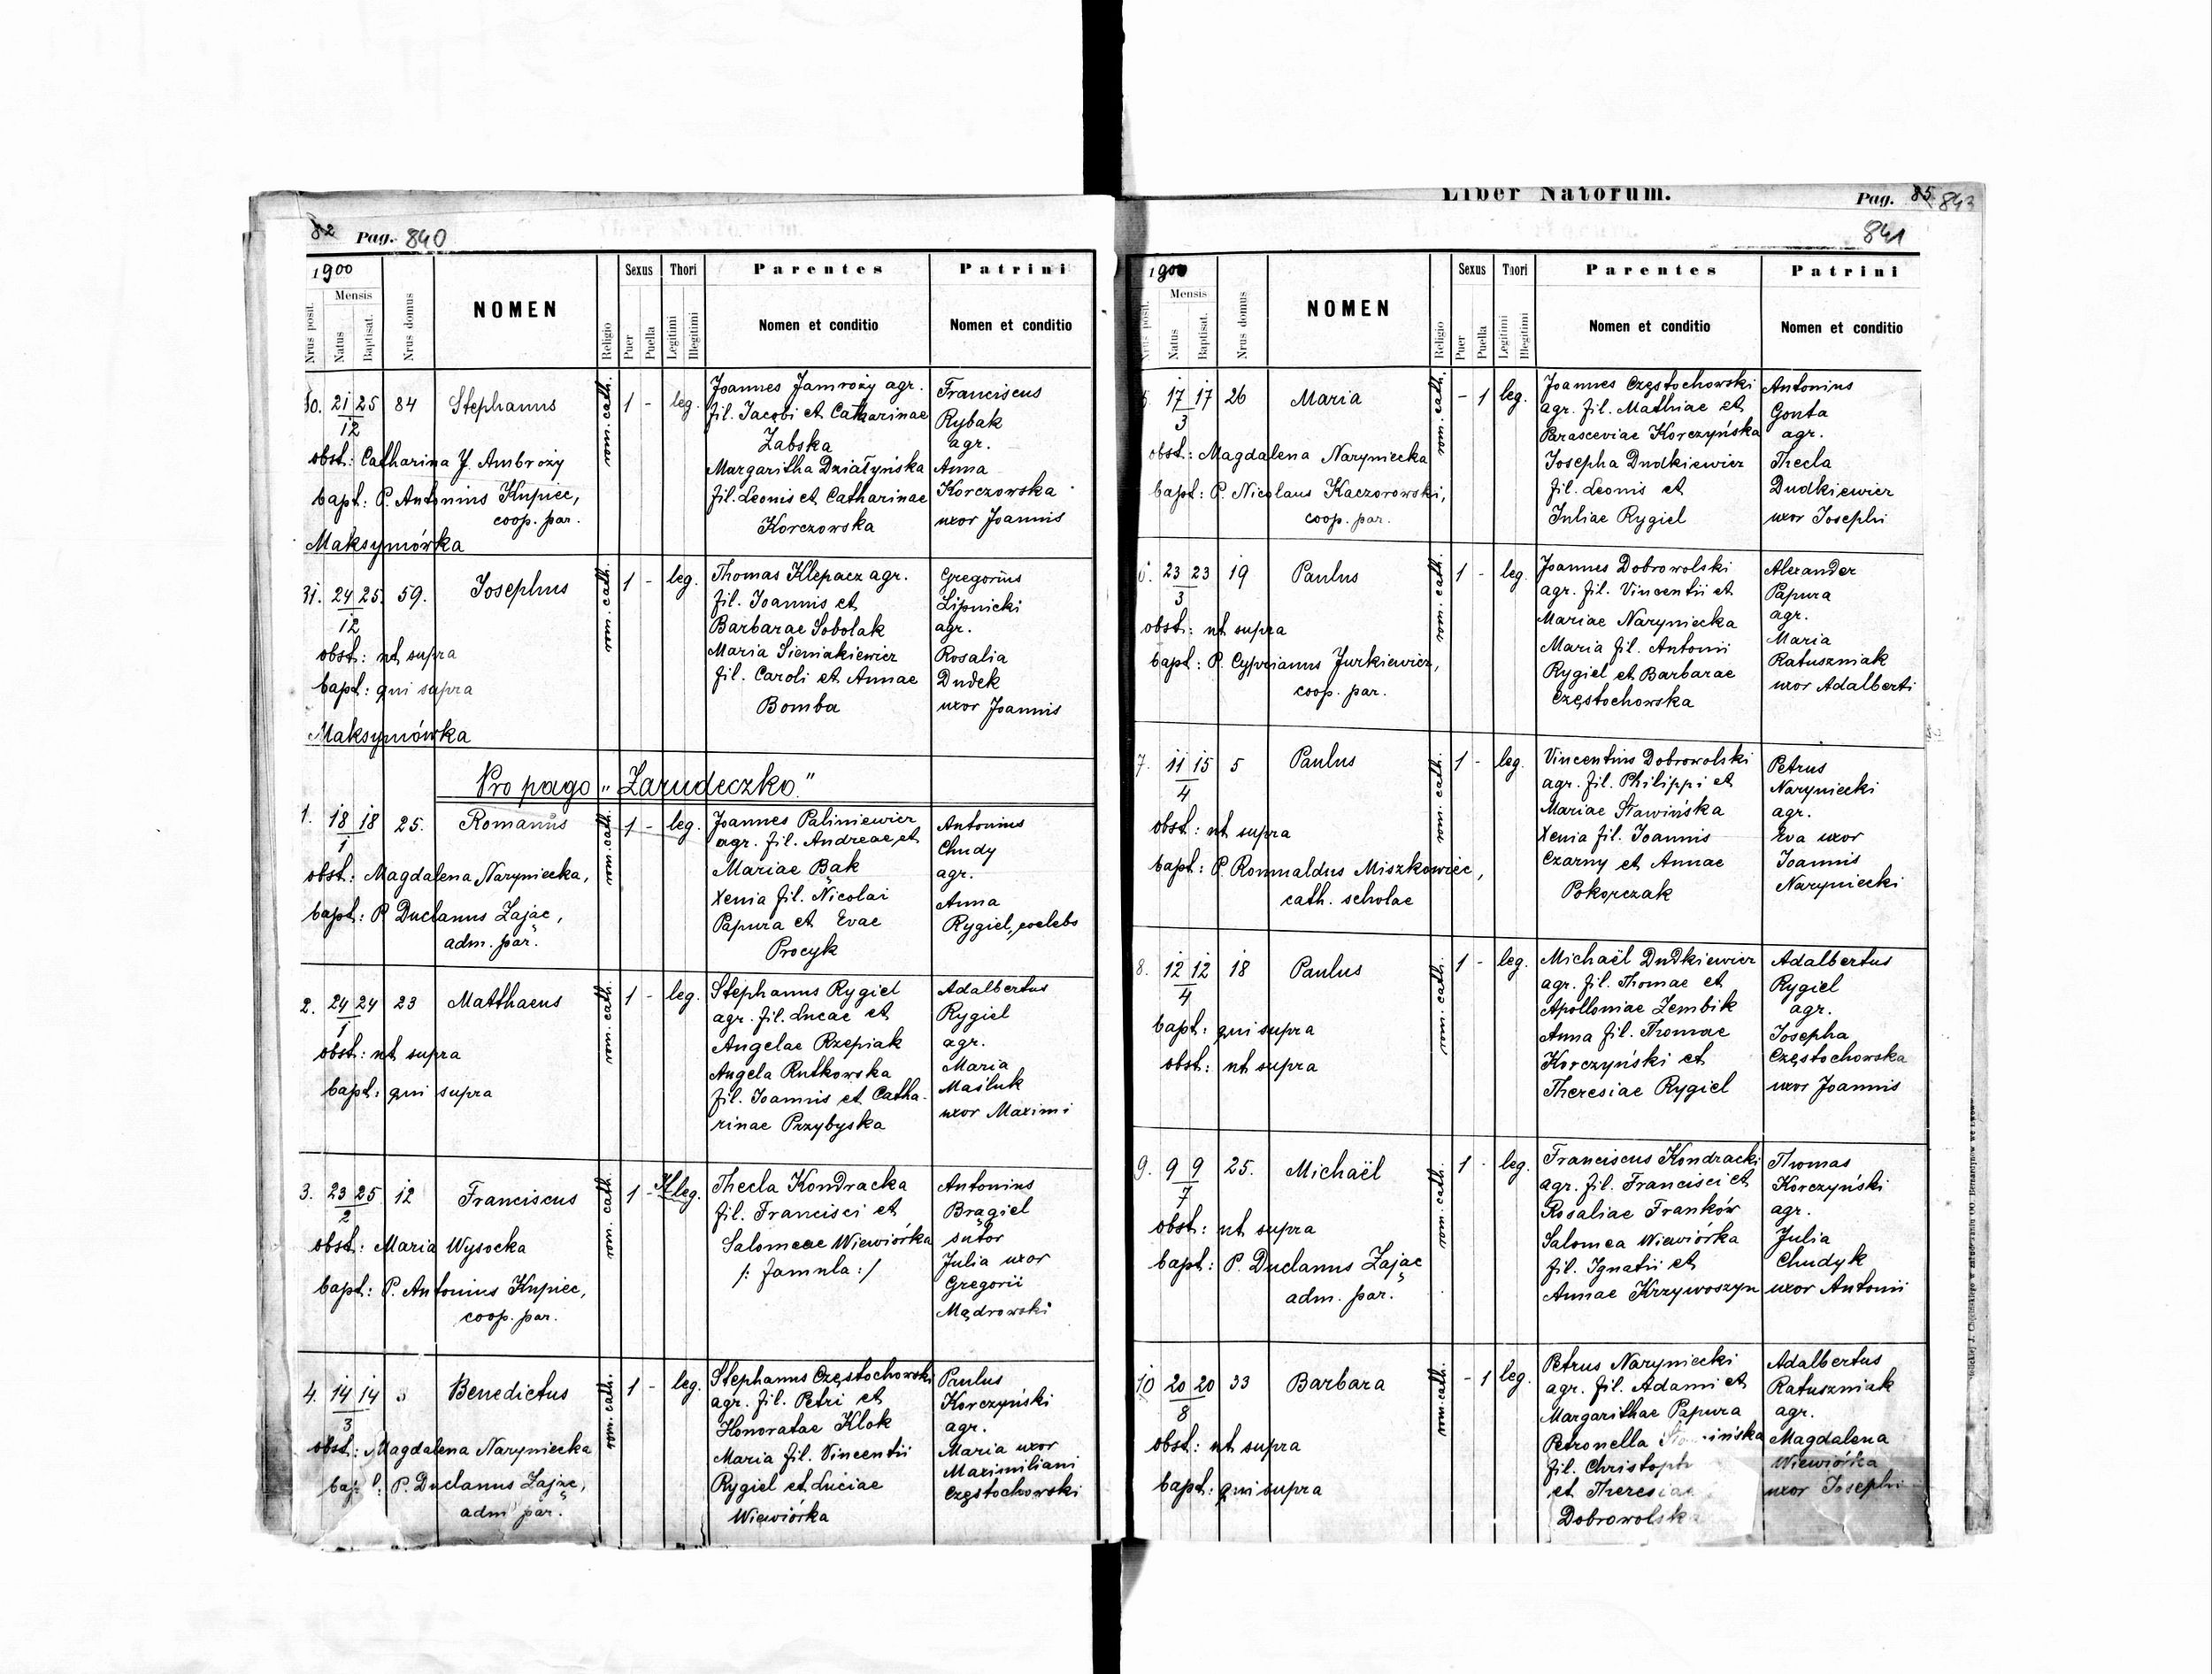 82 Pag. 840
1900
Mensis
Nrus posit.
Natus
Baptisat.
Nrus domus
NOMEN
Religio
Sexus
Puer
Puella
Thori
Legitimi
Illegitimi
Parentes
Nomen et conditio
Patrini
Nomen et conditio
30. 21 25 84 Stephanus 1 - leg.
12
rom. cath.
obst: Catharina J. Ambroży
bapt: P. Antonius Kupiec,
coop. par.
Maksymówka
Joannes Jamroży agr.
fil. Iacobi et Catharinae
Żabska
Margaritha Działyńska
fil. Leonis et Catharinae
Korczowska
Franciscus
Rybak
agr.
Anna
Korczowska
uxor Joannis
31. 24 25 59. Iosephus 1 - leg.
12
rom. cath.
obst: ut supra
bapt: qui supra
Maksymówka
Thomas Klepacz agr.
fil. Ioannis et
Barbarae Sobolak
Maria Sieniakiewicz
fil. Caroli et Annae
Bomba
Gregorius
Lipnicki
agr.
Rosalia
Dudek
uxor Joannis
Pro pago "Zarudeczko"
1. 18 18 25. Romanus 1 - leg.
1
rom. cath.
obst: Magdalena Naryniecka,
bapt: P Duclanus Zając,
adm. par.
Joannes Paliniewicz
agr. fil. Andreae et
Mariae Bąk
Xenia fil. Nicolai
Papura et Evae
Procyk
Antonius
Chudy
agr.
Anna
Rygiel, coelebs
2. 24 24 23 Matthaeus 1 - leg.
1
rom. cath.
obst: ut supra
bapt: qui supra
Stephanus Rygiel
agr. fil. Lucae et
Angelae Rzepiak
Angela Rutkowska
fil. Ioannis et Catha-
rinae Przybyska
Adalbertus
Rygiel
agr.
Maria
Maśluk
uxor Maximi
3. 23 25 12 Franciscus 1 - Illeg.
2
rom. cath.
obst: Maria Wysocka
bapt: P. Antonius Kupiec,
coop. par.
Thecla Kondracka
fil. Francisci et
Salomeae Wiewiórka
/: famula :/
Antonius
Brągiel
sutor
Julia uxor
Gregorii
Mądrowski
4. 14 14 Benedictus 1 - leg.
3
rom. cath.
obst: Magdalena Naryniecka
bapt: P. Duclanus Zając,
adm par.
Stephanus Częstochowski
agr. fil. Petri et
Honoratae Klok
Maria fil. Vincentii
Rygiel et Luciae
Wiewiórka
Paulus
Korczyński
agr.
Maria uxor
Maximiliani
Częstochowski
Liber Natorum.
Pag. 85 843
841
1900
Mensis
Nrus posit.
Natus
Baptisat.
Nrus domus
NOMEN
Religio
Sexus
Puer
Puella
Thori
Legitimi
Illegitimi
Parentes
Nomen et conditio
Patrini
Nomen et conditio
5. 17 17 26 Maria - 1 leg.
3
rom. cath.
obst: Magdalena Naryniecka
bapt: P. Nicolaus Kaczorowski,
coop. par.
Joannes Częstochowski
agr. fil. Mathiae et
Parasceviae Korczyńska
Iosepha Dudkiewicz
fil. Leonis et
Iuliae Rygiel
Antonius
Gonta
agr.
Thecla
Dudkiewicz
uxor Iosephi
6. 23 23 19 Paulus 1 - leg.
3
rom. cath.
obst: ut supra
bapt: P. Cyprianus Jurkiewicz,
coop. par.
Joannes Dobrowolski
agr. fil. Vincentii et
Mariae Naryniecka
Maria fil. Antonii
Rygiel et Barbarae
Częstochowska
Alexander
Papura
agr.
Maria
Ratuszniak
uxor Adalberti
7. 11 15 5 Paulus 1 - leg.
4
rom. cath.
obst: ut supra
bapt: P. Romualdus Miszkowiec,
cath. scholae
Vincentius Dobrowolski
agr. fil. Philippi et
Mariae Stawińska
Xenia fil. Ioannis
Czarny et Annae
Pokorczak
Petrus
Naryniecki
agr.
Eva uxor
Ioannis
Naryniecki
8. 12 12 18 Paulus 1 - leg.
4
rom. cath.
bapt: qui supra
obst: ut supra
Michaël Dudkiewicz
agr. fil. Thomae et
Apolloniae Zembik
Anna fil. Thomae
Korczyński et
Theresiae Rygiel
Adalbertus
Rygiel
agr.
Iosepha
Częstochowska
uxor Joannis
9. 9 9 25. Michaël 1 - leg.
7
rom. cath.
obst: ut supra
bapt: P. Duclanus Zając
adm. par.
Franciscus Kondracki
agr. fil. Francisci et
Rosaliae Franków
Salomea Wiewiórka
fil. Ignatii et
Annae Krzywoszyn
Thomas
Korczyński
agr.
Julia
Chudyk
uxor Antonii
10 20 20 33 Barbara - 1 leg.
8
rom. cath.
obst: ut supra
bapt: qui supra
Petrus Naryniecki
agr. fil. Adami et
Margarithae Papura
Petronella
fil. Christoph
et Theresiae
Dobrowolska
Adalbertus
Ratuszniak
agr.
Magdalena
Wiewiórka
uxor Iosephi